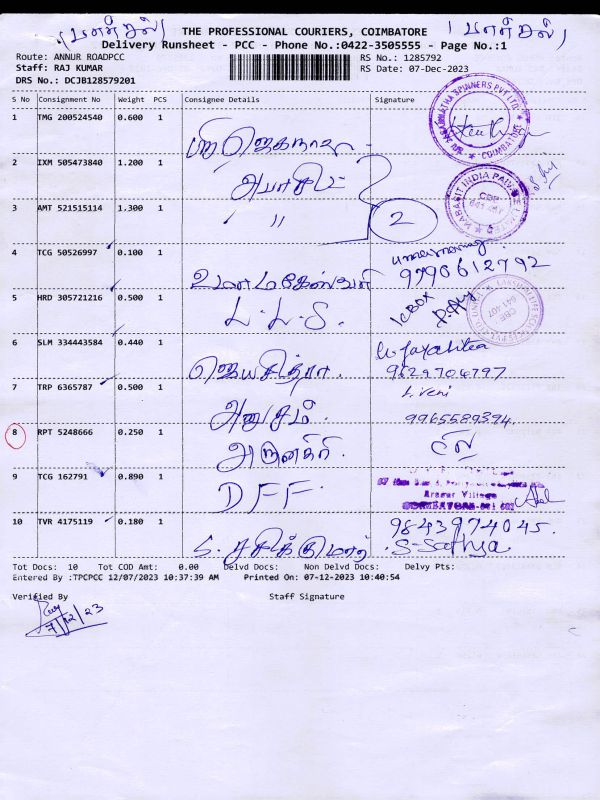 THE PROFESSIONAL COURIERS, COIMBATORE
Delivery Runsheet - PCC - Phone No.:0422-3505555 - Page No.:1
Route: ANNUR ROADPCC
Staff: RAJ KUMAR
DRS No.: DCJB128579201
RS No.: 1285792
RS Date: 07-Dec-2023
S No Consignment No Weight PCS Consignee Details Signature
1 TMG 200524540 0.600 1
2 IXM 505473840 1.200 1
3 AMT 521515114 1.300 1 " 2
4 TCG 50526997 0.100 1 உமாமகேஸ்வரி 9790612792
5 HRD 305721216 0.500 1 L.L.S. 1CBOX
6 SLM 334443584 0.440 1 ஜெயசித்ரா. 9629704797
7 TRP 6365787 0.500 1 அனுசம். L. Veni 9965589394
8 RPT 5248666 0.250 1
9 TCG 162791 0.890 1 DFF. Arasur Village
10 TVR 4175119 0.180 1 S. சசிக்குமார் 9843974045. S-Sathya
Tot Docs: 10 Tot COD Amt: 0.00 Delvd Docs: Non Delvd Docs: Delvy Pts:
Entered By :TPCPCC 12/07/2023 10:37:39 AM Printed On: 07-12-2023 10:40:54
Verified By Staff Signature
7/12/23